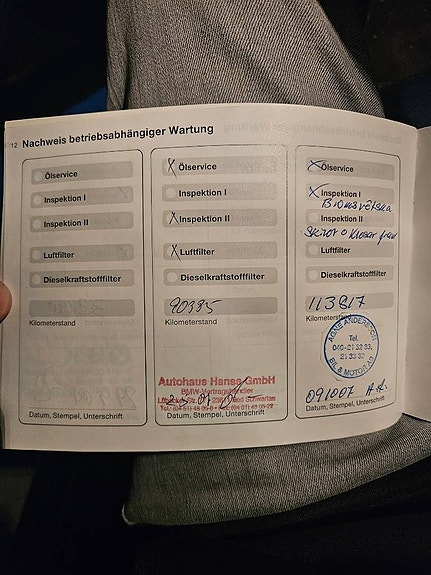 12 Nachweis betriebsabhängiger Wartung
Ölservice
Inspektion I
Inspektion II
Luftfilter
Dieselkraftstofffilter
Kilometerstand
Datum, Stempel, Unterschrift
X Ölservice
Inspektion I
X Inspektion II
X Luftfilter
Dieselkraftstofffilter
90395
Kilometerstand
Autohaus Hansa GmbH
BMW-Vertragshändler
Datum, Stempel, Unterschrift
X Ölservice
X Inspektion I
Bromsvätska
Inspektion II
Skivor o Klossar fram
Luftfilter
Dieselkraftstofffilter
113817
Kilometerstand
Tel.
040-21 32 33,
21 33 32
BIL & MOTOR AB
091007 A.A.
Datum, Stempel, Unterschrift